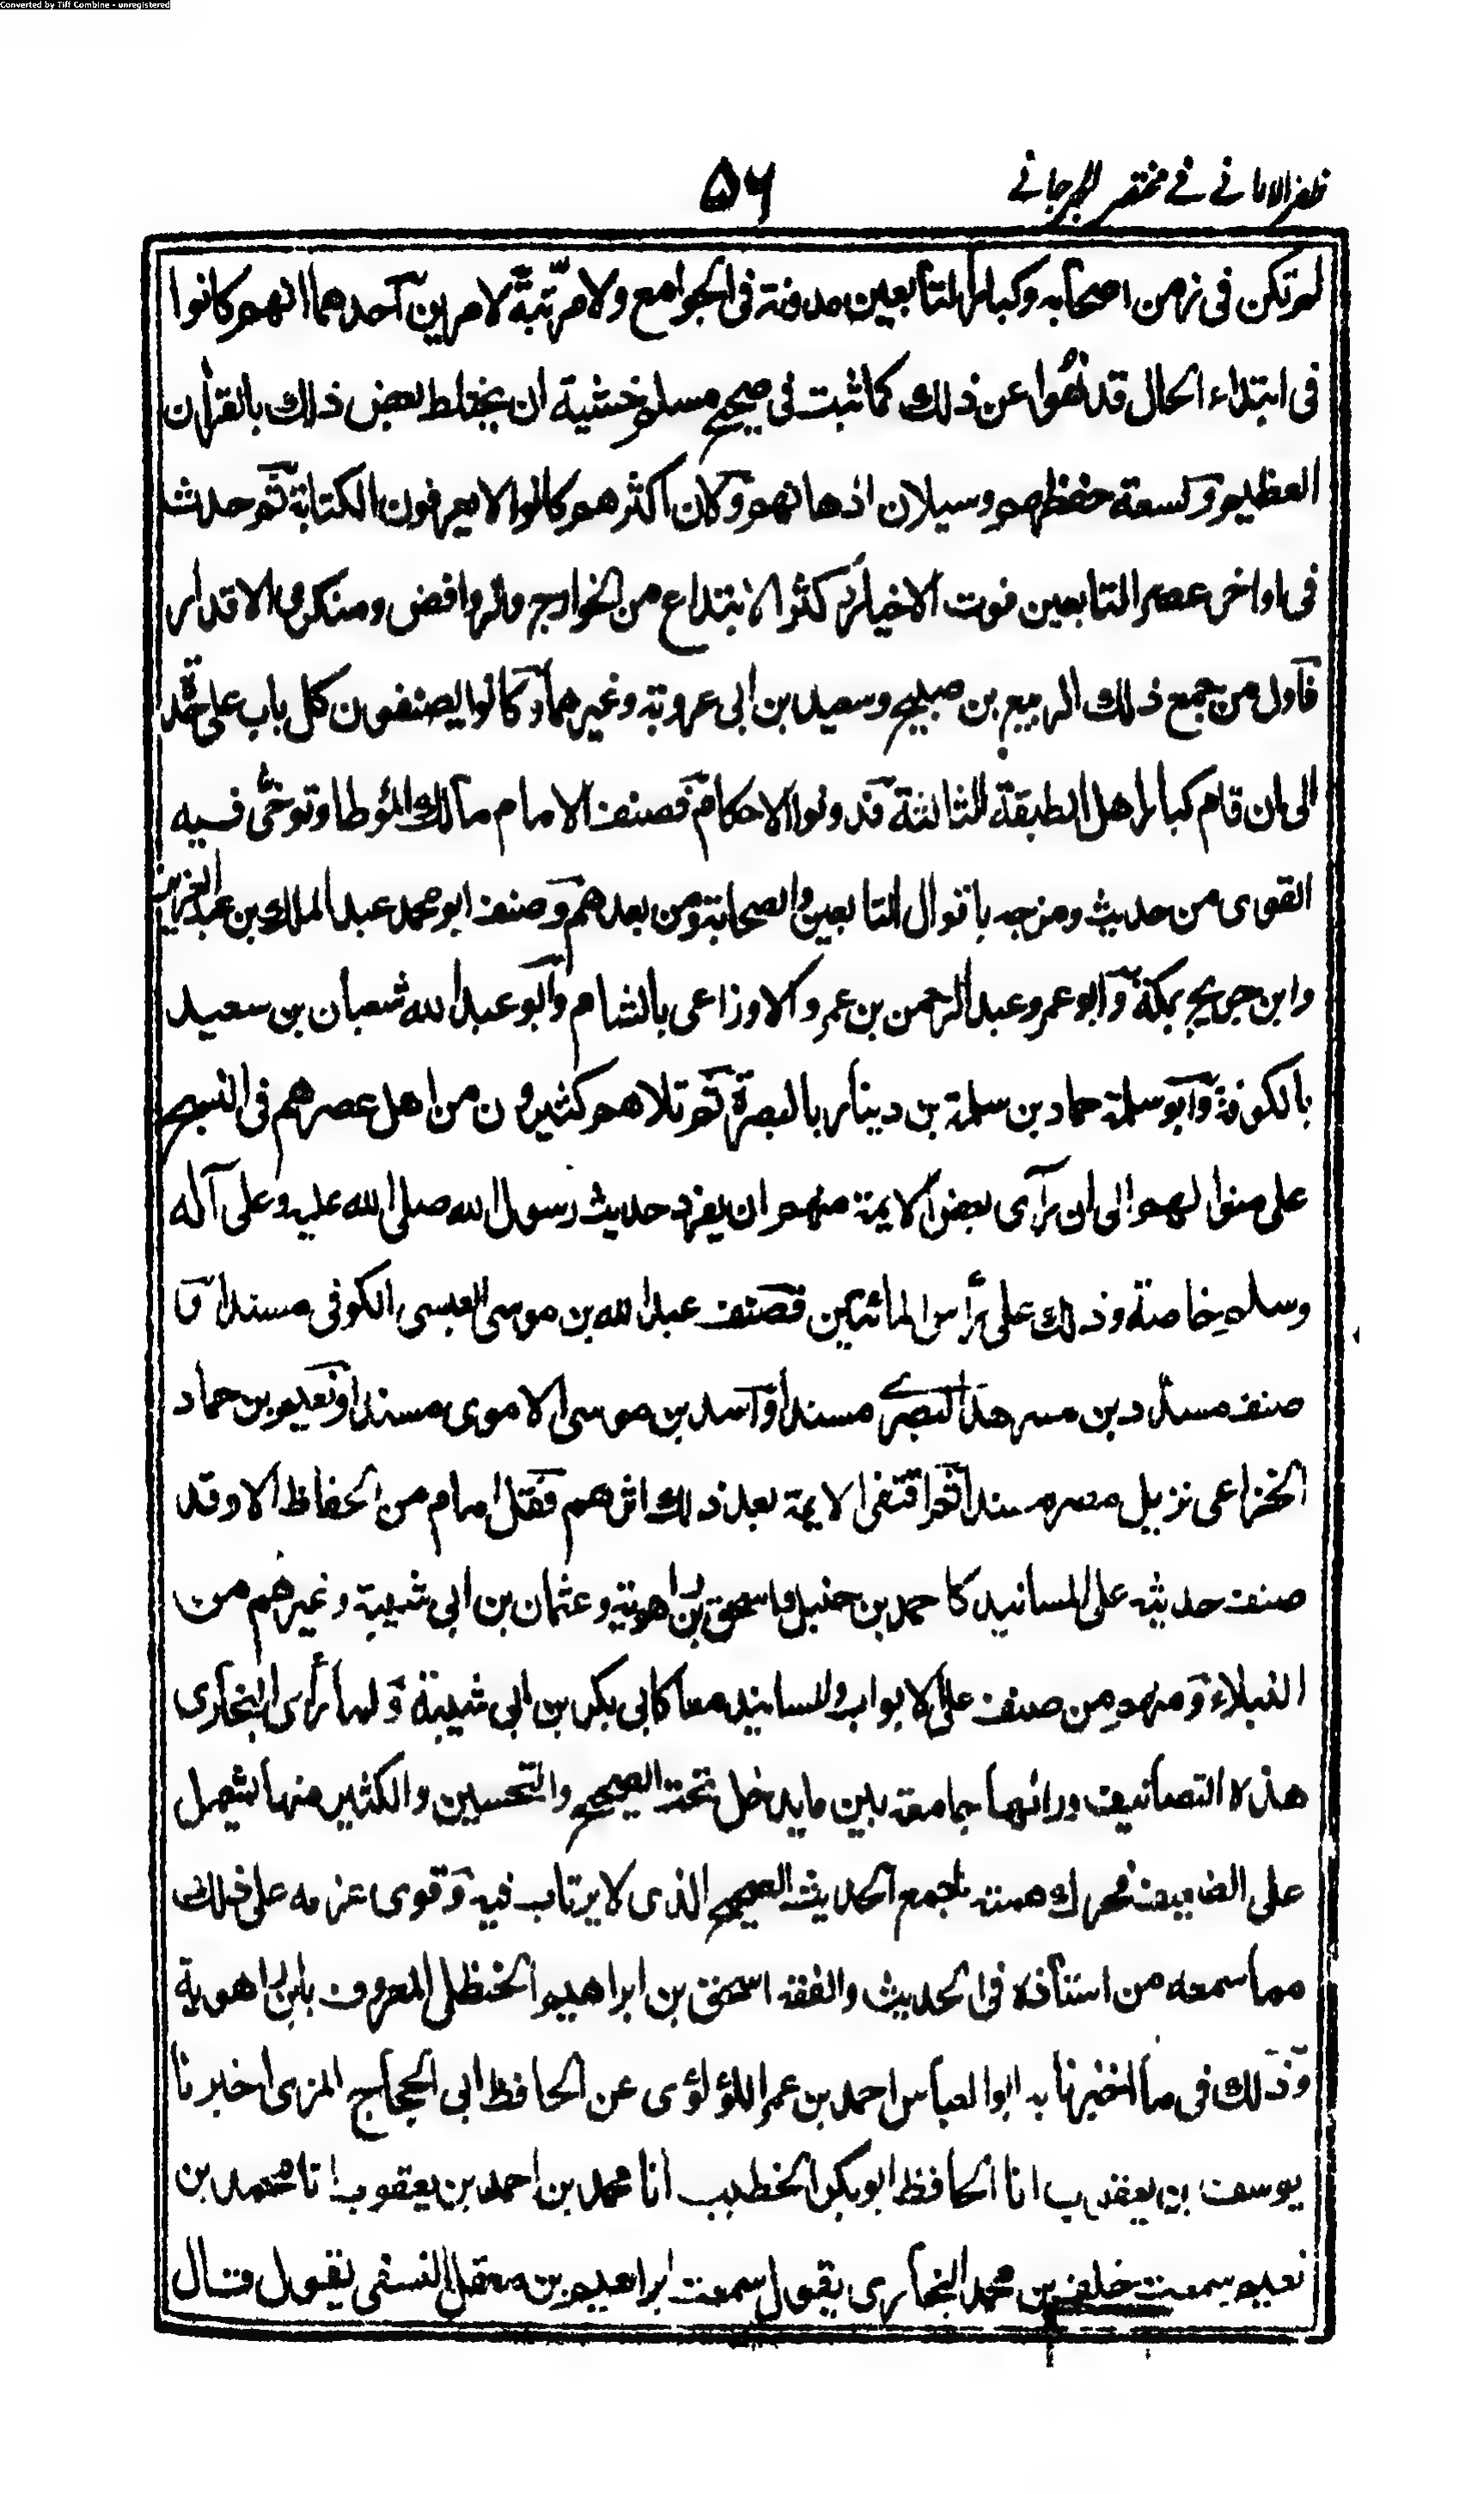 Converted by Tiff Combine - unregistered
ظفر الامانی فی مختصر الجرجانی
۵۶
لم تكن فی زمن اصحابه وكبار التابعين مدونة فی الجوامع ولا مرتبة لامرين احدهما انهم كانوا
فی ابتداء الحال قد نهوا عن ذلك كما ثبت فی صحيح مسلم خشية ان يختلط بعض ذلك بالقرآن
العظيم ولسعة حفظهم وسيلان اذهانهم ولان اكثرهم كانوا لا يعرفون الكتابة ثم حدث
فی اواخر عصر التابعين فوت الاخيار كثر الابتداع من الخوارج والروافض ومنكری الاقدار
فاول من جمع ذلك الربيع بن صبيح وسعيد بن ابی عروبة وغيرهما وكانوا يصنفون كل باب علی حدة
الی ان قام كبار اهل الطبقة الثالثة فدونوا الاحكام فصنف الامام مالك المؤطا وتوخی فيه
القوی من حديث ومزجه باقوال التابعين والصحابة ومن بعدهم وصنف ابو محمد عبد الملك بن عبد العزيز
وابن جريج بمكة وابو عمرو عبد الرحمن بن عمرو الاوزاعی بالشام وابو عبد الله شعبان بن سعيد
بالكوفة وابو سلمة حماد بن سلمة بن دينار بالبصرة ثم تلاهم كثيرون من اهل عصرهم فی النسج
علی منوالهم الی ان رآی بعض الايمة منهم ان يفرد حديث رسول الله صلی الله عليه وعلی آله
وسلم خاصة وذلك علی رأس المائتين فصنف عبد الله بن موسی العبسی الكوفی مسندا و
صنف مسدد بن مسرهد البصری مسندا واسد بن موسی الاموی مسندا ونعيم بن حماد
الخزاعی نزيل مصر مسندا ثم اقتفی الايمة بعد ذلك اثرهم فقل امام من الحفاظ الا وقد
صنف حديثه علی المسانيد كاحمد بن حنبل واسحق بن راهوية وعثمان بن ابی شيبة وغيرهم من
النبلاء ومنهم من صنف علی الابواب والمسانيد معا كابی بكر بن ابی شيبة ولما رأی البخاری
هذه التصانيف ورائها جامعة بين ما يدخل تحت الصحيح والتحسين والكثير منها يشمل
علی الضعيف فحرك همته لجمع الحديث الصحيح الذی لا يرتاب فيه وقوی عزمه علی ذلك
مما سمعه من استاذه فی الحديث والفقه اسحق بن ابراهيم الحنظلی المعروف بابن راهوية
وذلك فی ما اخبرنا به ابو العباس احمد بن عمر اللؤلؤی عن الحافظ ابی الحجاج المزی اخبرنا
يوسف بن يعقوب انا الحافظ ابو بكر الخطيب انا محمد بن احمد بن يعقوب انا محمد بن
نعيم سمعت خلف بن محمد البخاری يقول سمعت ابراهيم بن معقل النسفی يقول قال